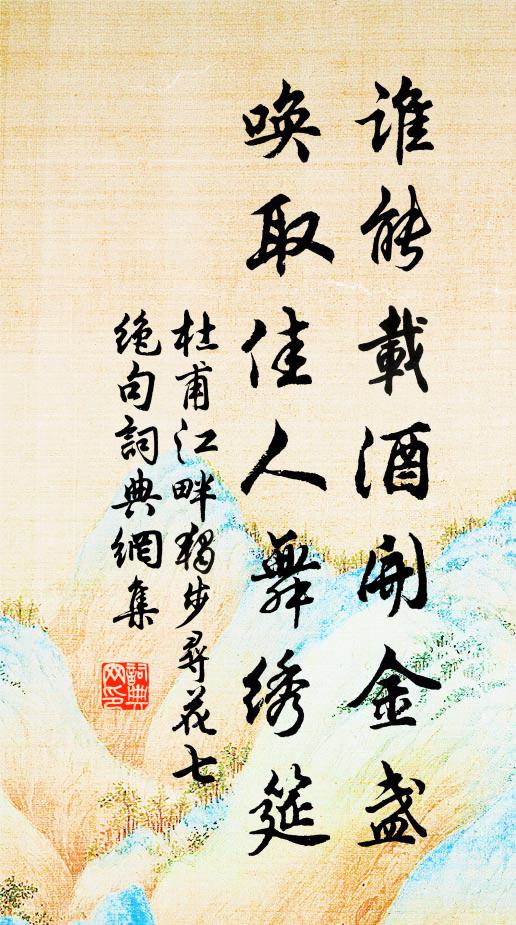 谁能載酒開金盏
唤取佳人舞绣筵
杜甫江畔獨步尋花七
绝句詞典網集
詞典网印